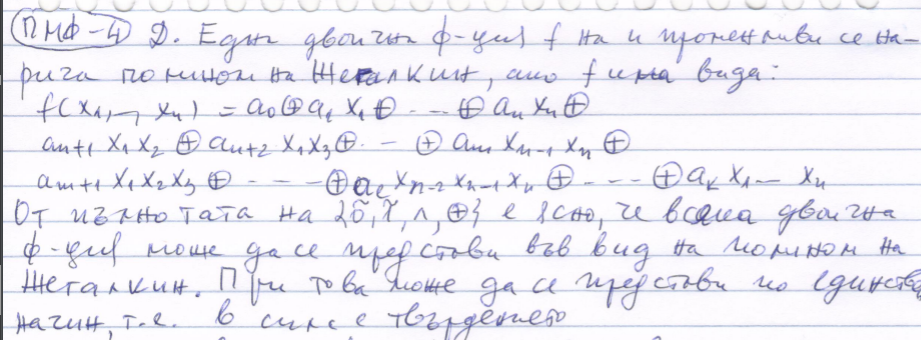 ПМФ-4 Д. Една двоична ф-ция f на n променливи се на-
рича полином на Жегалкин, ако f има вида:
f(x₁,..., xₙ) = a₀ ⊕ a₁ x₁ ⊕ ... ⊕ aₙ xₙ ⊕
aₙ₊₁ x₁ x₂ ⊕ aₙ₊₂ x₁ x₃ ⊕ ... ⊕ aₘ xₙ₋₁ xₙ ⊕
aₘ₊₁ x₁ x₂ x₃ ⊕ ---- ⊕ aₑ xₙ₋₂ xₙ₋₁ xₙ ⊕ --- ⊕ aₖ x₁ --- xₙ
От пълнотата на {õ, ĩ, ∧, ⊕} е ясно, че всяка двоична
ф-ция може да се представи във вид на полином на
Жегалкин. При това може да се представи по единств.
начин, т.е. в сила е твърдението